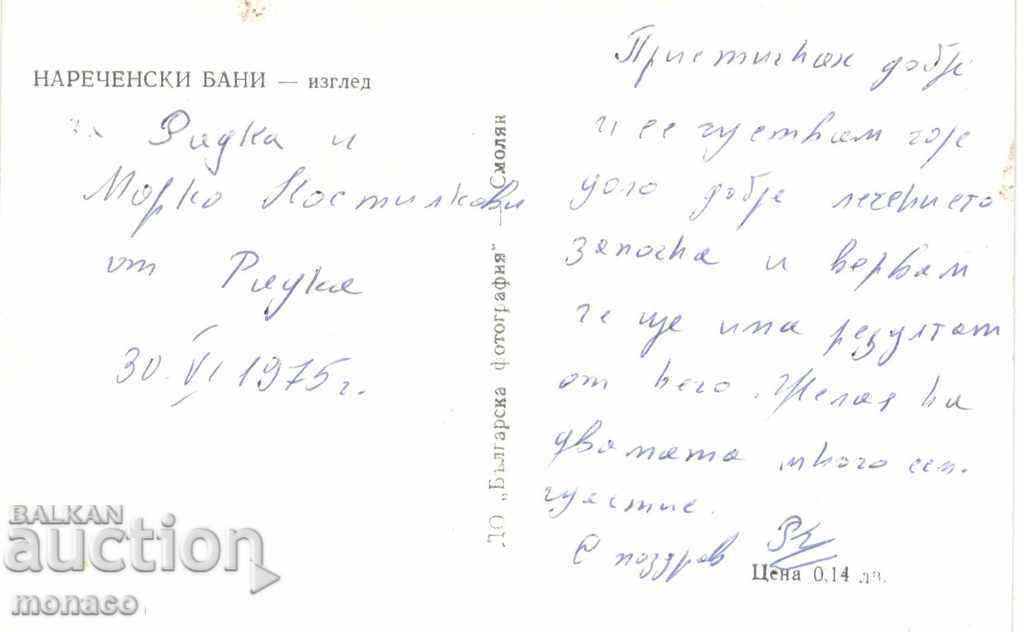 НАРЕЧЕНСКИ БАНИ — изглед
Радка и
Марко Костилкови
от Радка
30. VI 1975 г.
ДО „Българска фотография" — Смолян
Пристигнах добре
и се чуствам горе
доло добре лечението
започна и вервам
че ще има резултат
от него. Желая на
двамата много сем.
щастие.
С поздров
Цена 0,14 лв.
BALKAN
auction
monaco